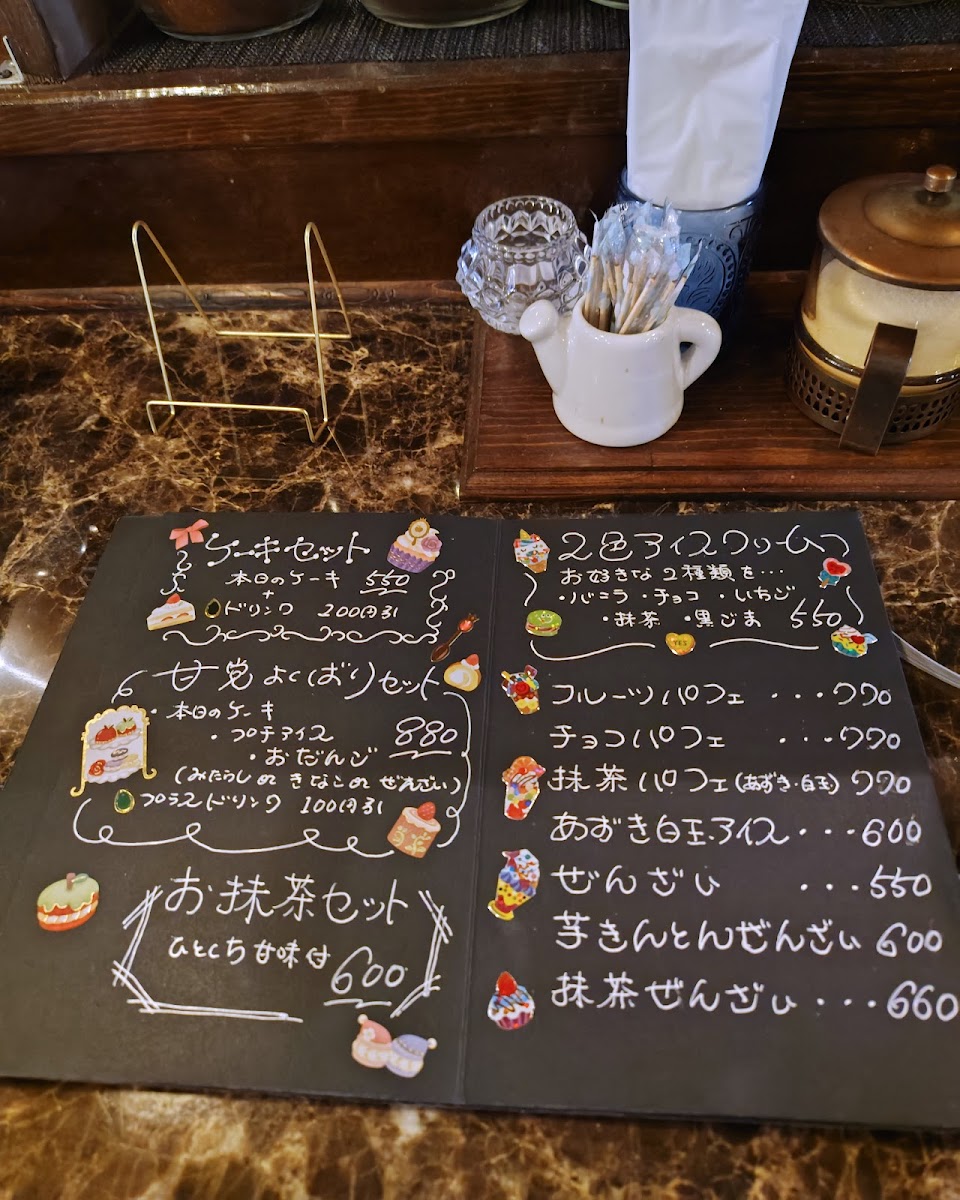 ケーキセット
本日のケーキ 550
+
ドリンク 200円引
甘党よくばりセット
・本日のケーキ
・プチアイス 880
・おだんご
(みたらしor きなこor ぜんざい)
プラスドリンク 100円引
お抹茶セット
ひとくち甘味付
600
2色アイスクリーム
お好きな2種類を…
・バニラ・チョコ・いちご
・抹茶・黒ごま 550
YES
フルーツパフェ ・・・770
チョコパフェ ・・・770
抹茶パフェ(あずき・白玉) 770
あずき白玉アイス・・・600
ぜんざい ・・・550
芋きんとんぜんざい 600
抹茶ぜんざい・・・660